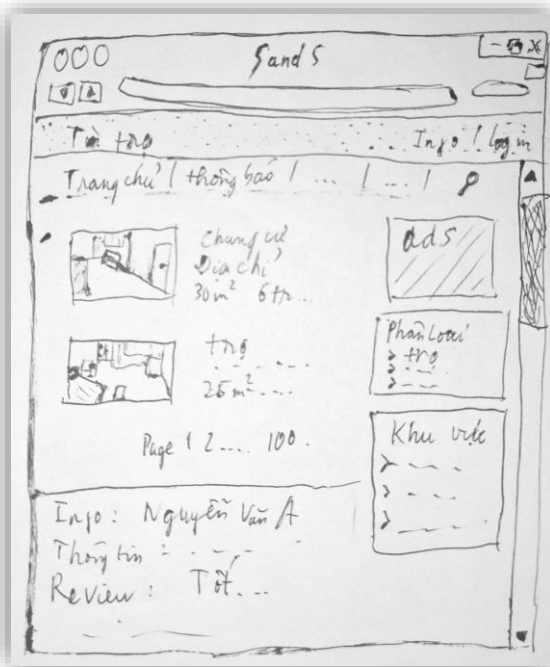 Sand S
- x
Tìm trọ
Info / log in
Trang chủ / thông báo / ... / ... /
chung cư
Địa chỉ
30m² 6tr...
ads
trọ
25m²...
Phân Loại
> trọ
>
>
Page 1 2 .... 100.
Khu vực
>
>
>
Info: Nguyễn Văn A
Thông tin:
Review: Tốt...